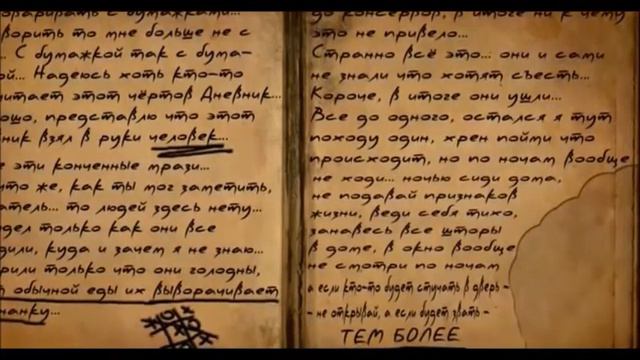 разговаривать с бумажками...
говорить то мне больше не с
... С бумажкой так с бума-
ой... Надеюсь хоть кто-то
читает этот чёртов Дневник...
ошо, представлю что этот
ник взял в руки человек...
е эти конченные мрази...
что же, как ты мог заметить,
атель... то людей здесь нету...
дел только как они все
дили, куда и зачем я не знаю...
рили только что они голодны,
т обычной еды их выворачивает
нанку...
до консеррв, в итоге ни к чему
это не привело...
Странно всё это... они и сами
не знали что хотят съесть...
Короче, в итоге они ушли...
Все до одного, остался я тут
походу один, хрен пойми что
происходит, но по ночам вообще
не ходи... ночью сиди дома,
не подавай признаков
жизни, веди себя тихо,
занавесь все шторы
в доме, в окно вообще
не смотри по ночам
а если кто-то будет стучать в дверь -
- не открывай, а если будет звать -
ТЕМ БОЛЕЕ